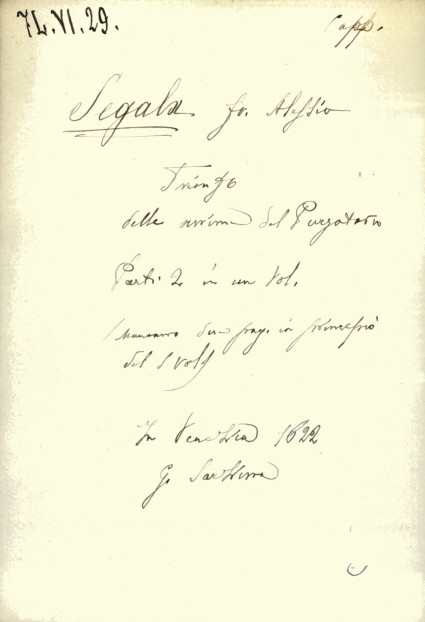 7L.VI.29.
Capp.
Segala fr. Alessio
Trionfo
delle anime del Purgatorio
Parti 2 in un Vol.
(Mancano due pag. in principio
del 1 vol)
In Venezia 1622
G. Sarzina